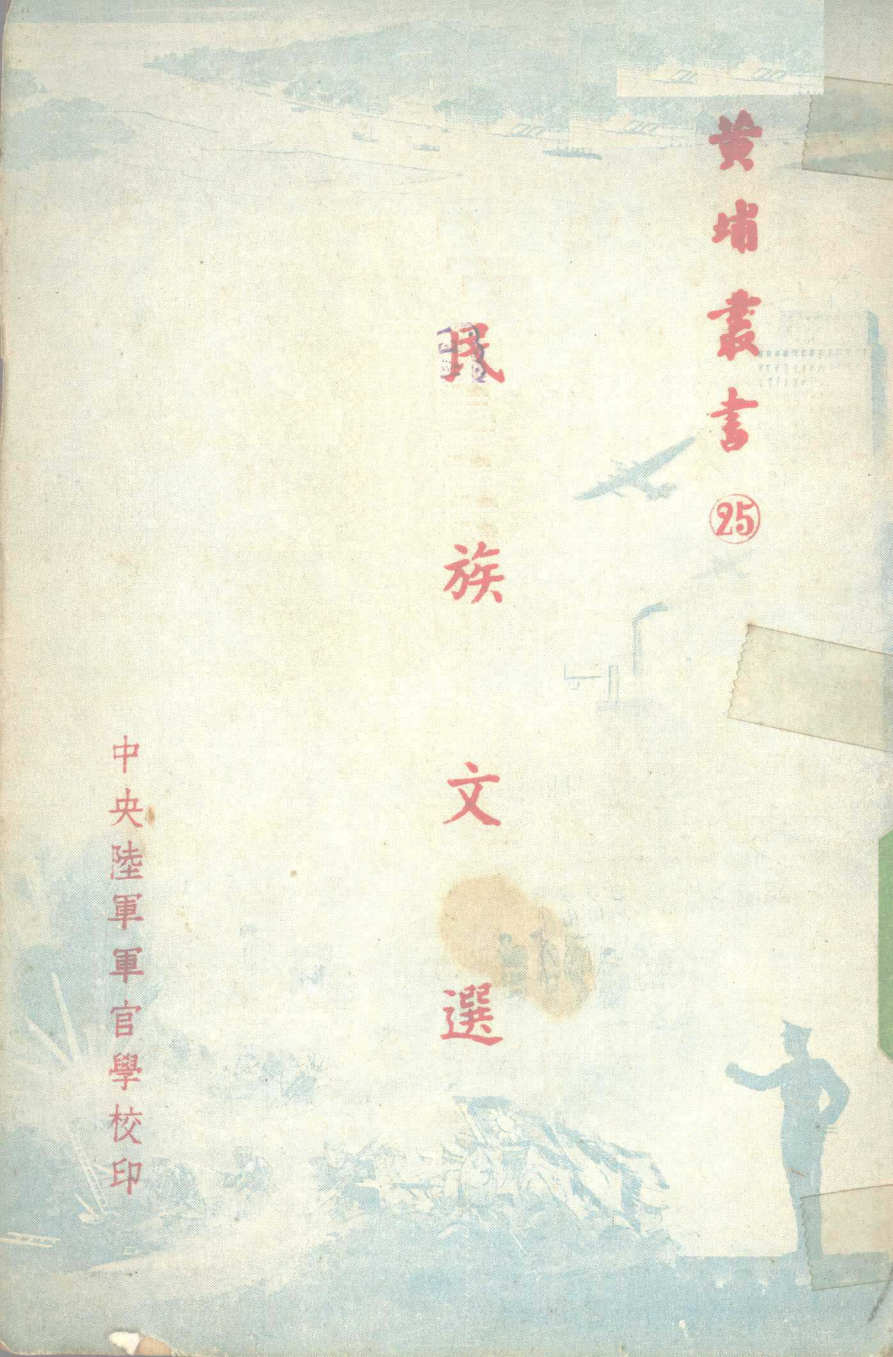 黃埔叢書㉕
民族文選
中央陸軍軍官學校印